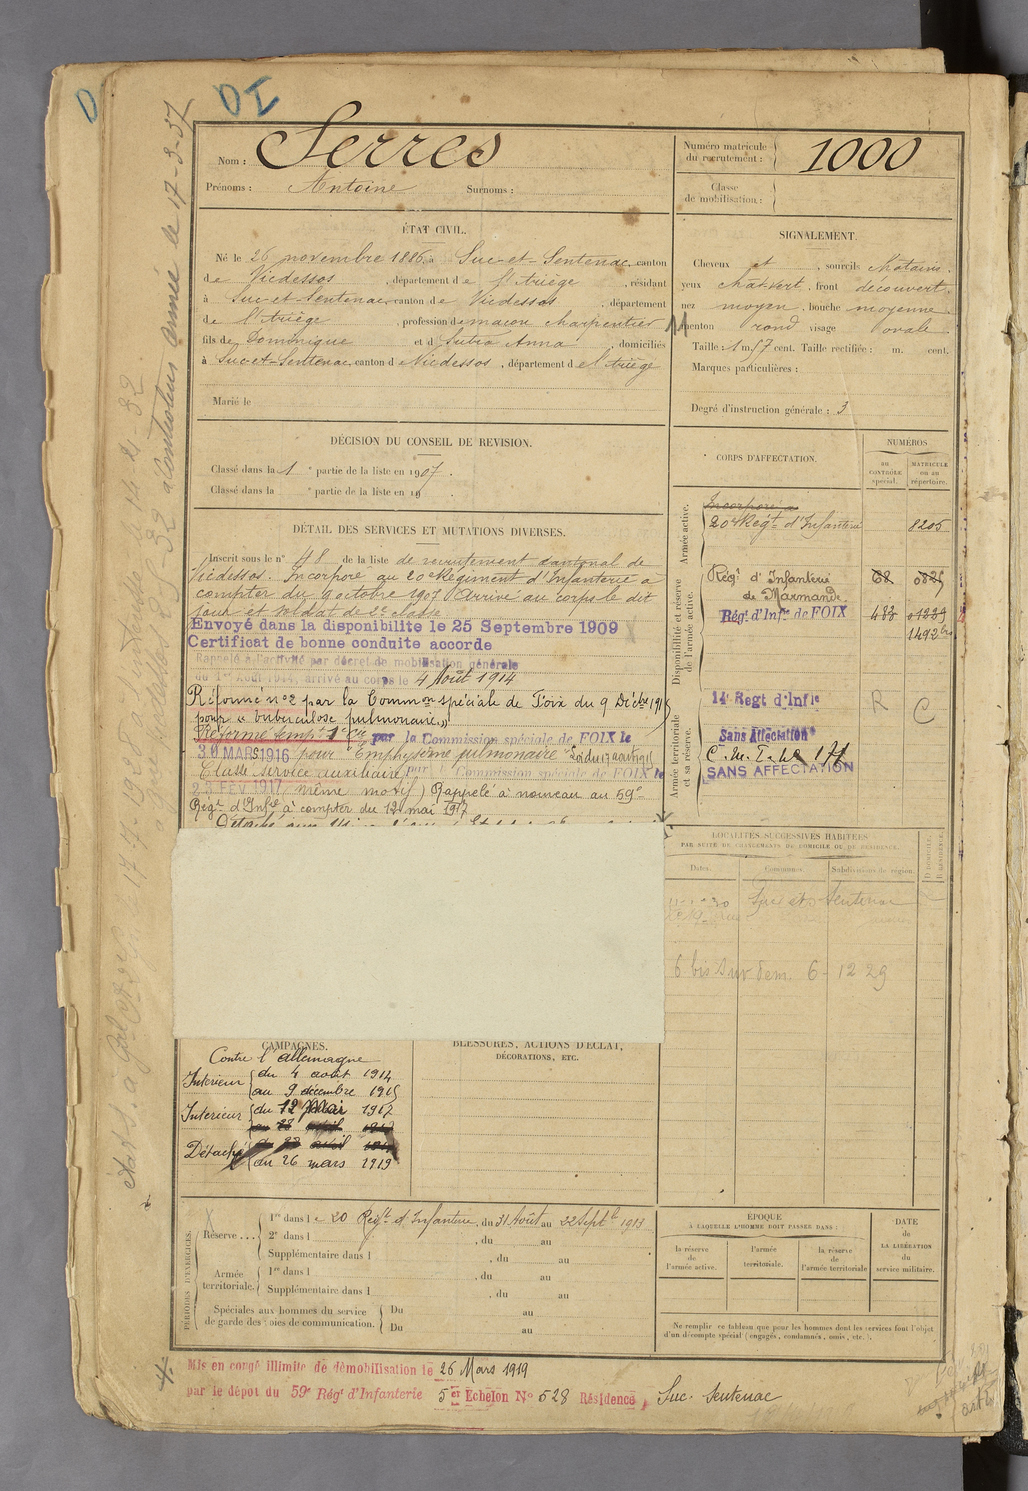 D
DI
Nom : Serres
Prénoms : Antoine Surnoms :
Numéro matricule du recrutement : 1000
Classe de mobilisation :
ÉTAT CIVIL.
Né le 26 novembre 1886, à Suc-et-Sentenac, canton
de Vicdessos, département de l'Ariège, résidant
à Suc-et-Sentenac, canton de Vicdessos, département
de l'Ariège, profession de maçon charpentier
fils de Dominique et d Subra Anna, domiciliés
à Suc-et-Sentenac, canton de Vicdessos, département de l'Ariège
Marié le
SIGNALEMENT.
Cheveux et , sourcils chatains.
yeux chat-vert, front découvert,
nez moyen, bouche moyenne,
menton rond visage ovale.
Taille : 1 m. 57 cent. Taille rectifiée : m. cent.
Marques particulières :
Degré d'instruction générale : 3
DÉCISION DU CONSEIL DE REVISION.
Classé dans la 1e partie de la liste en 1907.
Classé dans la e partie de la liste en 19
DÉTAIL DES SERVICES ET MUTATIONS DIVERSES.
Inscrit sous le n° 48 de la liste de recrutement cantonal de
Vicdessos. Incorporé au 20e Régiment d'Infanterie à
compter du 9 octobre 1907. Arrivé au corps le dit
jour et soldat de 2e classe
Envoyé dans la disponibilite le 25 Septembre 1909
Certificat de bonne conduite accorde
Rappelé à l'activité par décret de mobilisation générale
du 1er Août 1914, arrivé au corps le 4 Août 1914
Réformé n°2 par la Common spéciale de Foix du 9 Décbre 1915
pour « tuberculose pulmonaire »
Réformé temp. 1° par la Commission spéciale de FOIX le
30 MARS 1916 pour Emphysème pulmonaire Loi du 17 août 1915
Classé service auxiliaire par Commission spéciale de FOIX le
23 FEV 1917 même motif) Rappelé à nouveau au 59e
Régt d'Infie à compter du 12 mai 1917
CORPS D'AFFECTATION.
NUMÉROS
AU CONTRÔLE spécial.
MATRICULE ou au répertoire.
Armée active.
Incorporé au
20e Régt d'Infanterie 8205
Disponibilité et réserve de l'armée active.
Régt d'Infanterie de Marmande 68 0825
Régt d'Infie de FOIX 483 01229
1492 bis
Armée territoriale et sa réserve.
14e Regt d'Infie R C
Sans Affectation
C. M. I. de 171
SANS AFFECTATION
LOCALITÉS SUCCESSIVES HABITÉES
PAR SUITE DE CHANGEMENTS DE DOMICILE OU DE RÉSIDENCE.
Dates. Communes. Subdivisions de région. D DOMICILE. R RÉSIDENCE.
Suc et Sentenac
6 bis Suv dem 6-12 29
CAMPAGNES.
Contre l'allemagne
Intérieur du 4 août 1914
au 9 décembre 1915
Intérieur du 12 mai 1917
Détaché
au 26 mars 1919
BLESSURES, ACTIONS D'ÉCLAT,
DÉCORATIONS, ETC.
PÉRIODES D'EXERCICES.
Réserve ... 1re dans le 20 Régt d'Infanterie, du 31 Août au 22 Septbre 1913
2e dans l , du au
Supplémentaire dans l , du au
Armée territoriale. 1re dans l , du au
Supplémentaire dans l , du au
Spéciales aux hommes du service de garde des voies de communication. Du au
Du au
EPOQUE
À LAQUELLE L'HOMME DOIT PASSER DANS :
la réserve de l'armée active.
l'armée territoriale.
la réserve de l'armée territoriale
DATE de LA LIBÉRATION du service militaire.
Ne remplir ce tableau que pour les hommes dont les services font l'objet
d'un décompte spécial (engagés, condamnés, omis, etc.).
Mis en congé illimité de démobilisation le 26 Mars 1919
par le dépôt du 59e Régt d'Infanterie 5er Echelon N° 528 Résidence, Suc. Sentenac